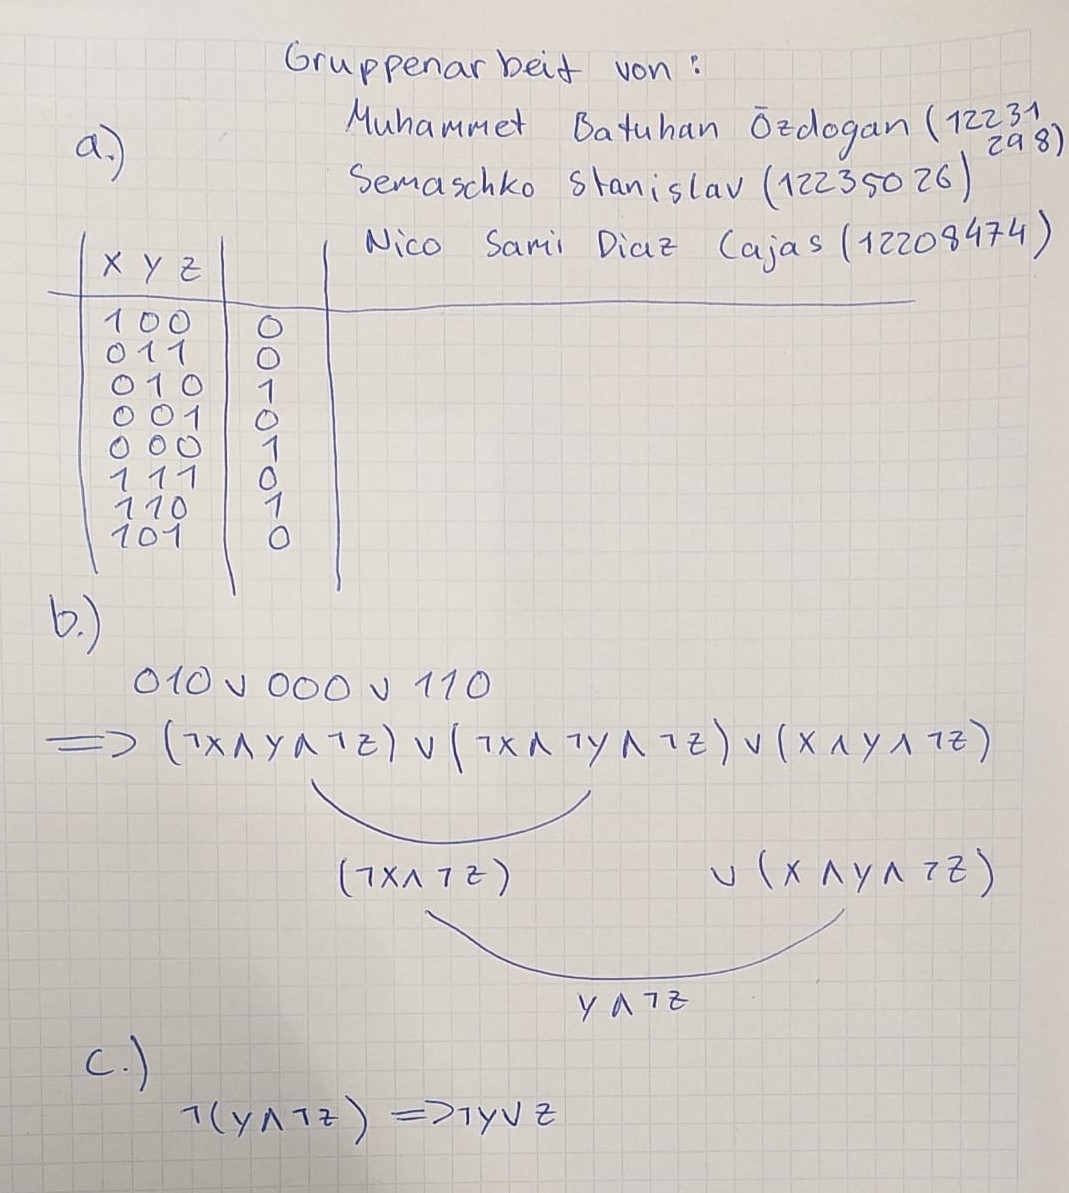 Gruppenarbeit von:
Muhammet Batuhan Özdogan (12231
298)
a.)
Semaschko Stanislav (12235026)
Nico Sami Diaz Cajas (12208474)
x y z
1 0 0 0
0 1 1 0
0 1 0 1
0 0 1 0
0 0 0 1
1 1 1 0
1 1 0 1
1 0 1 0
b.)
010 ∨ 000 ∨ 110
=> (¬x∧y∧¬z) ∨ (¬x∧¬y∧¬z) ∨ (x∧y∧¬z)
(¬x∧¬z) ∨ (x∧y∧¬z)
y∧¬z
c.)
¬(y∧¬z) => ¬y∨z